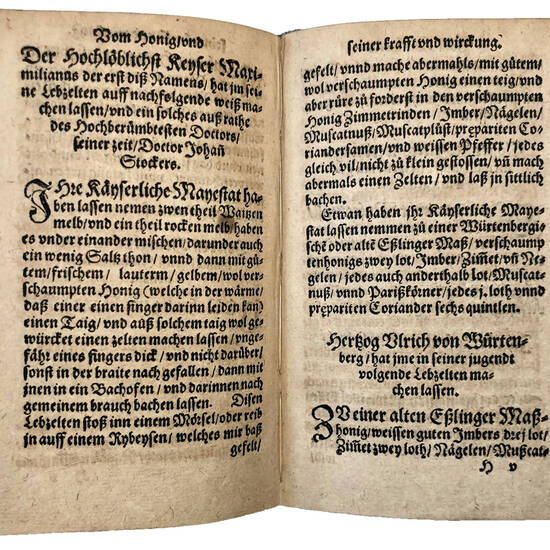 Vom Honig/vnd
Der Hochlöblichst Keyser Maxi-
milianns der erst diß Namens/ hat jm sei-
ne Lebzelten auff nachfolgende weiß ma-
chen lassen/ vnd ein solches auß rathe
des Hochberümbtesten Doctors/
seiner zeit/ Doctor Johañ
Stockers.
IHre Käyserliche Mayestat ha-
ben lassen nemen zwen theil Waitzen
melb/ vnd ein theil rocken melb/ haben
es vnder einander mischen/ darunder auch
ein wenig Saltz thon/ vnnd dann mit gů-
tem/ frischem/ lauterm/ gelbem/ wol ver-
schaumpten Honig (welche in der wärme/
daß einer einen finger darinn leiden kan)
einen Taig/ vnd auß solchem taig wol ge-
würcket einen zelten machen lassen/ vnge-
fähr eines fingers dick/ vnd nicht darüber/
sonst in der braite nach gefallen/ dann mit
jnen in ein Bachofen/ vnd darinnen nach
gemeinem brauch bachen lassen. Disen
Lebzelten stoß inn einem Mörsel/ oder reib
jn auff einem Rybeysen/ welches mir baß
gefelt/
seiner krafft vnd wirckung.
gefelt/ vnnd mache abermahls/ mit gůtem/
wol verschaumpten Honig einen teig/ vnd
aber rüre zu forderst in den verschaumpten
Honig Zimmetrinden/ Imber/ Nägelen/
Muscatnuß/ Muscatplüst/ prepariten Co-
riandersamen/ vnd weissen Pfeffer/ jedes
gleich vil/ nicht zu klein gestossen/ vñ mach
abermals einen Zelten/ vnd laß jn sittlich
bachen.
Etwan haben jhr Käyserliche Maye-
stat lassen nemmen zu einer Würtenbergi-
sche oder alte Eßlinger Maß/ verschaump-
tenhonigs zwey lot/ Imber/ Zim̃et/ vñ Ne-
gelen/ jedes auch anderthalb lot/ Muscat-
nuß/ vnnd Parißkörner/ jedes j. loth vnnd
prepariten Coriander sechs quintlen.
Hertzog Vlrich von Würten-
berg/ hat jme in seiner jugendt
volgende Lebzelten ma-
chen lassen.
ZV einer alten Eßlinger Maß-
honig/ weissen guten Imbers drej lot/
Zim̃et zwey loth/ Nägelen/ Mußcat-
H v